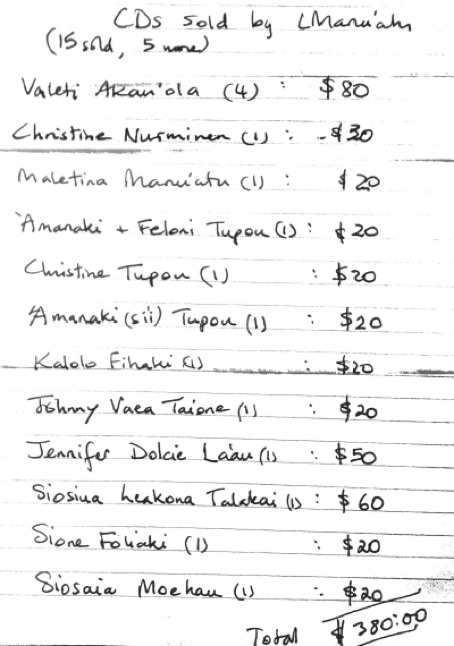 CDs sold by LManu'atu
(15 sold, 5 more)
Valeti Akau'ola (4) : $80
Christine Nurminen (1) : $30
Maletina Manu'atu (1) : $20
'Amanaki + Feloni Tupou (1) : $20
Christine Tupou (1) : $20
'Amanaki (sii) Tupou (1) : $20
Kalolo Fihaki (1) : $20
Johnny Vaea Taione (1) : $20
Jennifer Dolcie La'au (1) : $50
Siosiua (1) : $60
Sione Foliaki (1) : $20
Siosaia Moehau (1) : $20
Total $380:00